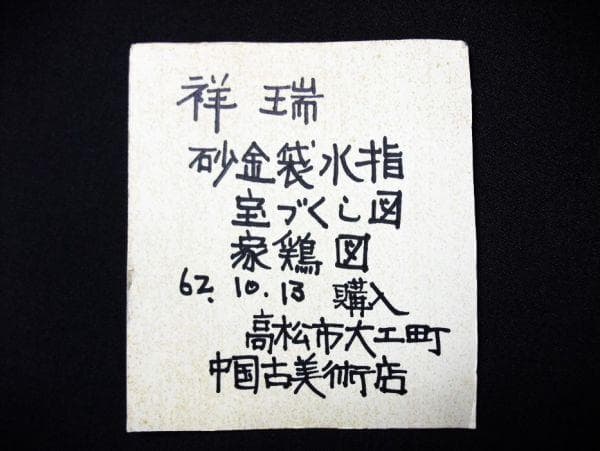 祥瑞
砂金袋水指
宝づくし図
家鶏図
62.10.13 購入
高松市大工町
中国古美術店